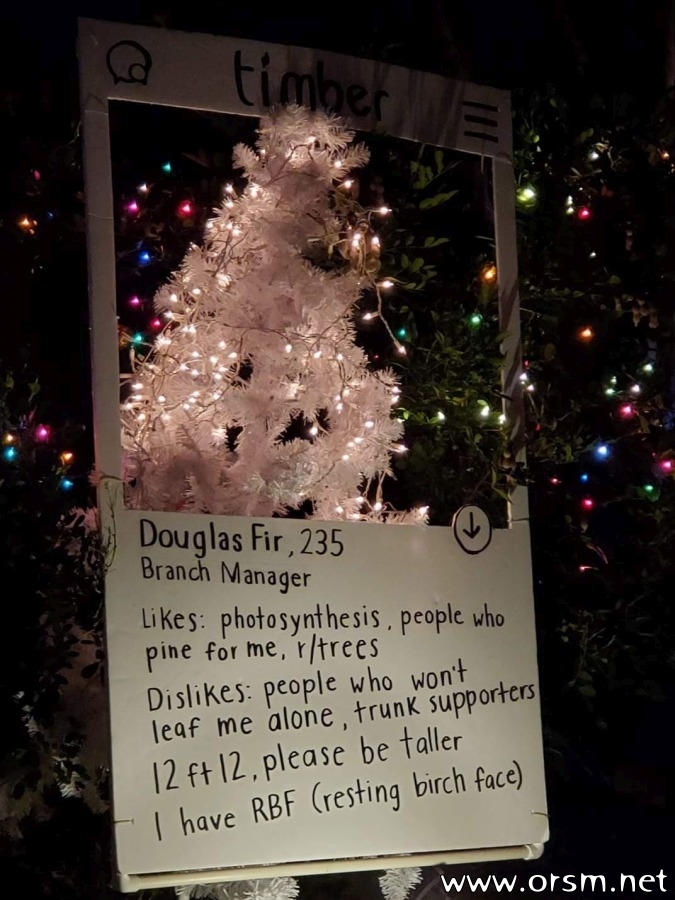 timber
Douglas Fir, 235
Branch Manager
Likes: photosynthesis, people who
pine for me, r/trees
Dislikes: people who won't
leaf me alone, trunk supporters
12 ft 12, please be taller
I have RBF (resting birch face)
www.orsm.net